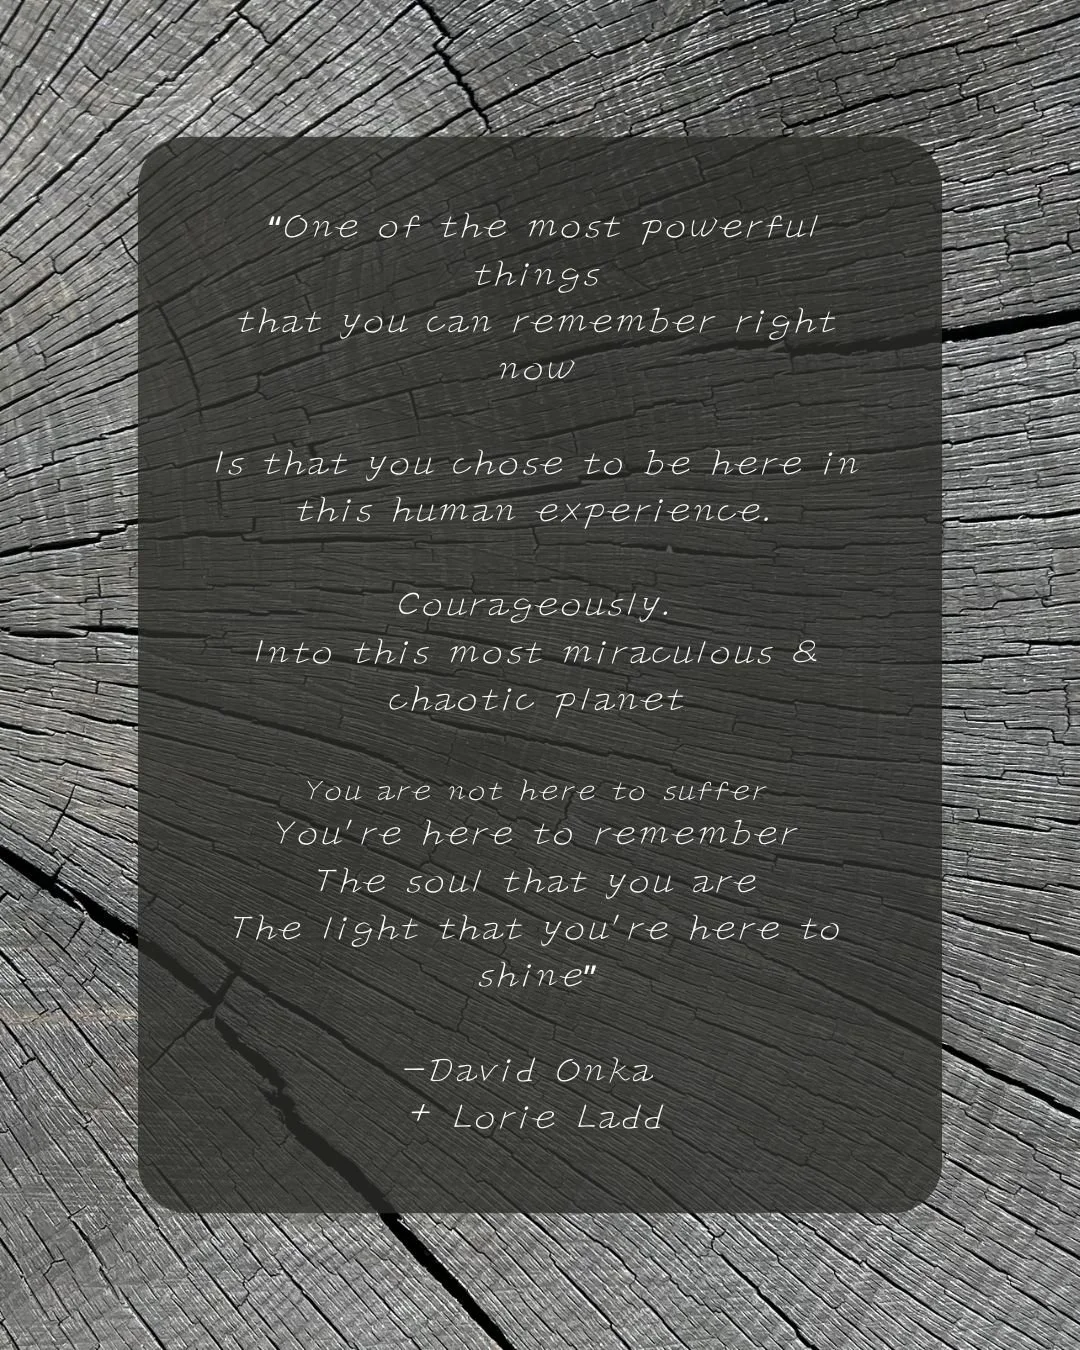 "One of the most powerful
things
that you can remember right
now
Is that you chose to be here in
this human experience.
Courageously.
Into this most miraculous &
chaotic planet
You are not here to suffer
You're here to remember
The soul that you are
The light that you're here to
shine"
-David Onka
+ Lorie Ladd